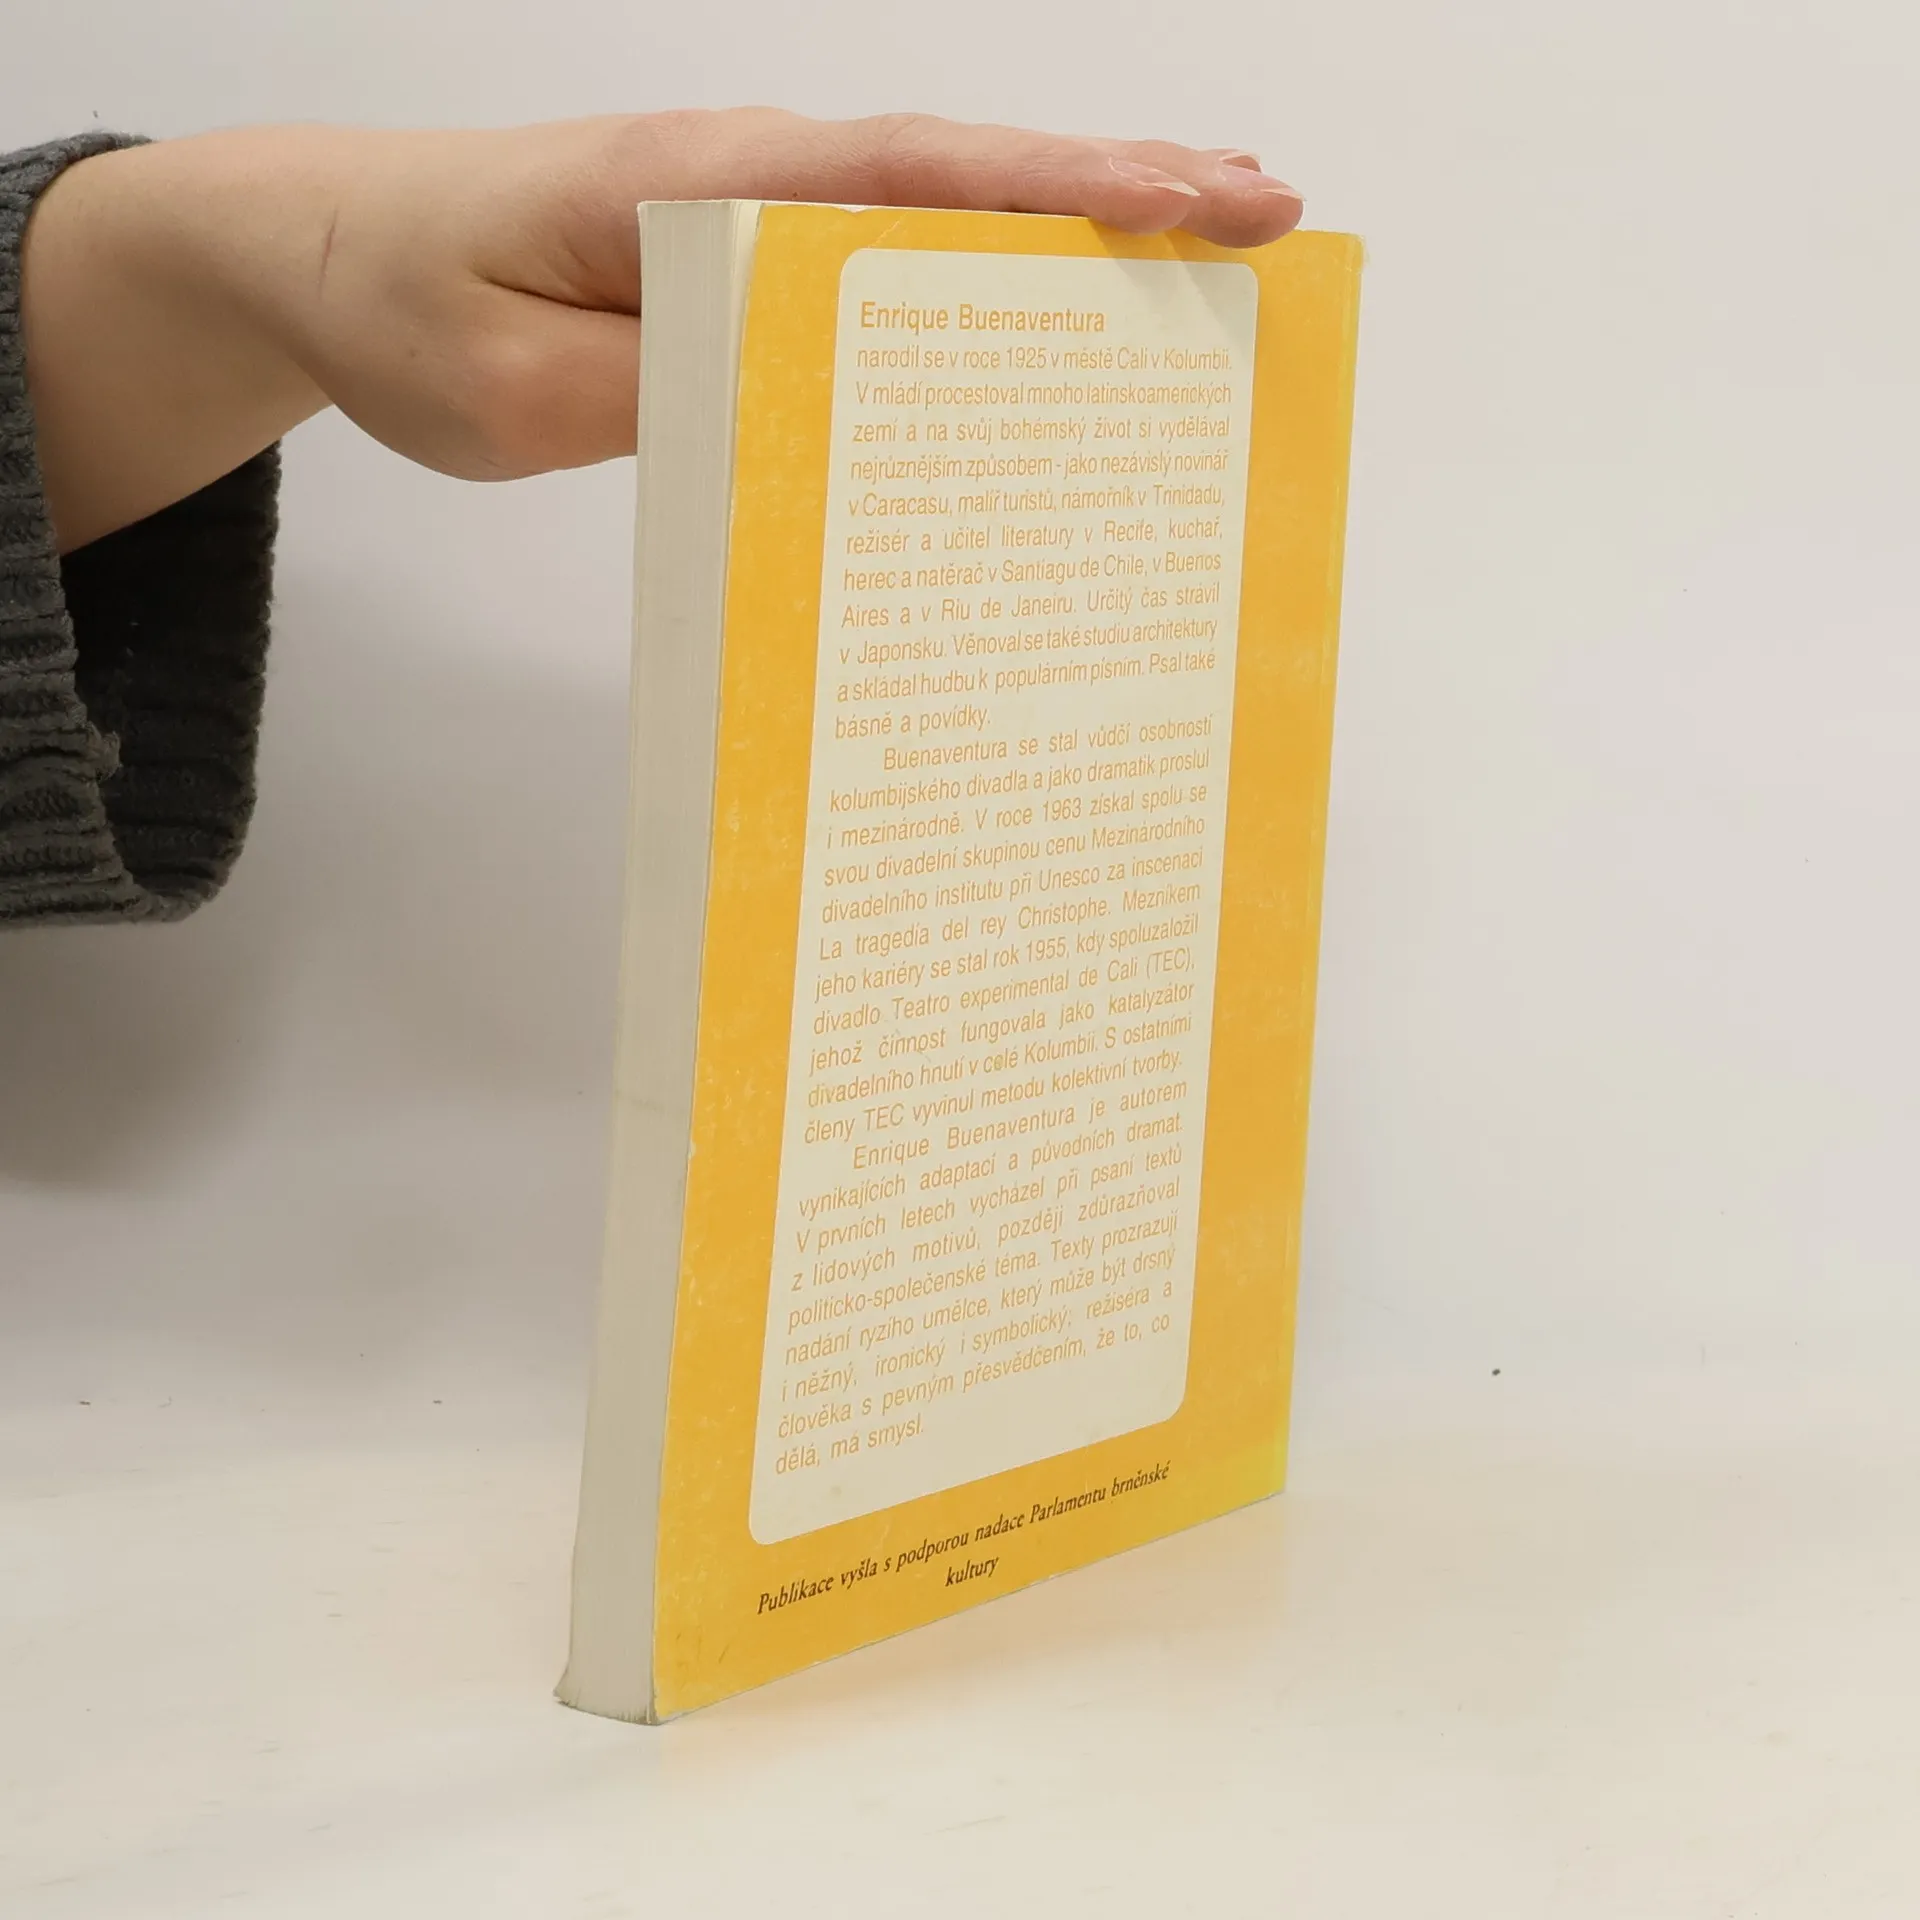 Enrique Buenaventura
narodil se v roce 1925 v městě Cali v Kolumbii.
V mládí procestoval mnoho latinskoamerických
zemí a na svůj bohémský život si vydělával
nejrůznějším způsobem - jako nezávislý novinář
v Caracasu, malíř turistů, námořník v Trinidadu,
režisér a učitel literatury v Recife, kuchař,
herec a natěrač v Santiagu de Chile, v Buenos
Aires a v Riu de Janeiru. Určitý čas strávil
v Japonsku. Věnoval se také studiu architektury
a skládal hudbu k populárním písním. Psal také
básně a povídky.
Buenaventura se stal vůdčí osobností
kolumbijského divadla a jako dramatik proslul
i mezinárodně. V roce 1963 získal spolu se
svou divadelní skupinou cenu Mezinárodního
divadelního institutu při Unesco za inscenaci
La tragedia del rey Christophe. Mezníkem
jeho kariéry se stal rok 1955, kdy spoluzaložil
divadlo Teatro experimental de Cali (TEC),
jehož činnost fungovala jako katalyzátor
divadelního hnutí v celé Kolumbii. S ostatními
členy TEC vyvinul metodu kolektivní tvorby.
Enrique Buenaventura je autorem
vynikajících adaptací a původních dramat.
V prvních letech vycházel při psaní textů
z lidových motivů, později zdůrazňoval
politicko-společenské téma. Texty prozrazují
nadání ryzího umělce, který může být drsný
i něžný, ironický i symbolický; režiséra a
člověka s pevným přesvědčením, že to, co
dělá, má smysl.
Publikace vyšla s podporou nadace Parlamentu brněnské
kultury